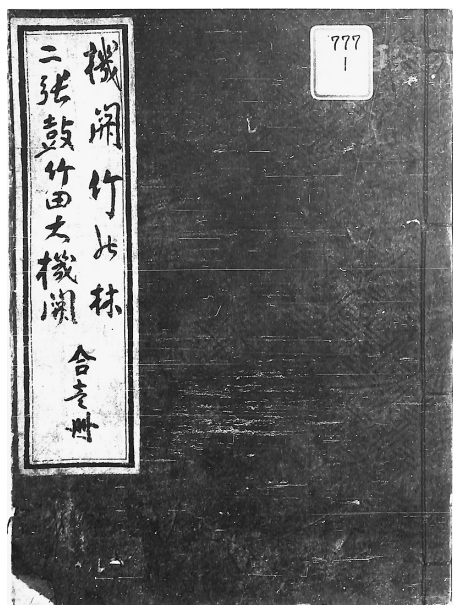 機関竹の林
二張鼓竹田大機関
合壱冊
777
1